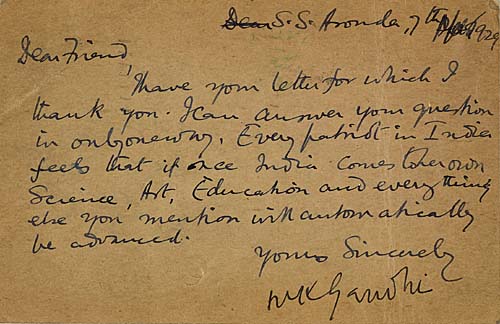 Dear S. S. Aronda, 7th 1929
Dear Friend,
I have your letter for which I
thank you. I can answer your question
in only one way. Every patriot in India
feels that if once India comes to her own
Science, Art, Education and everything
else you mention will automatically
be advanced.
Yours Sincerely
MKGandhi